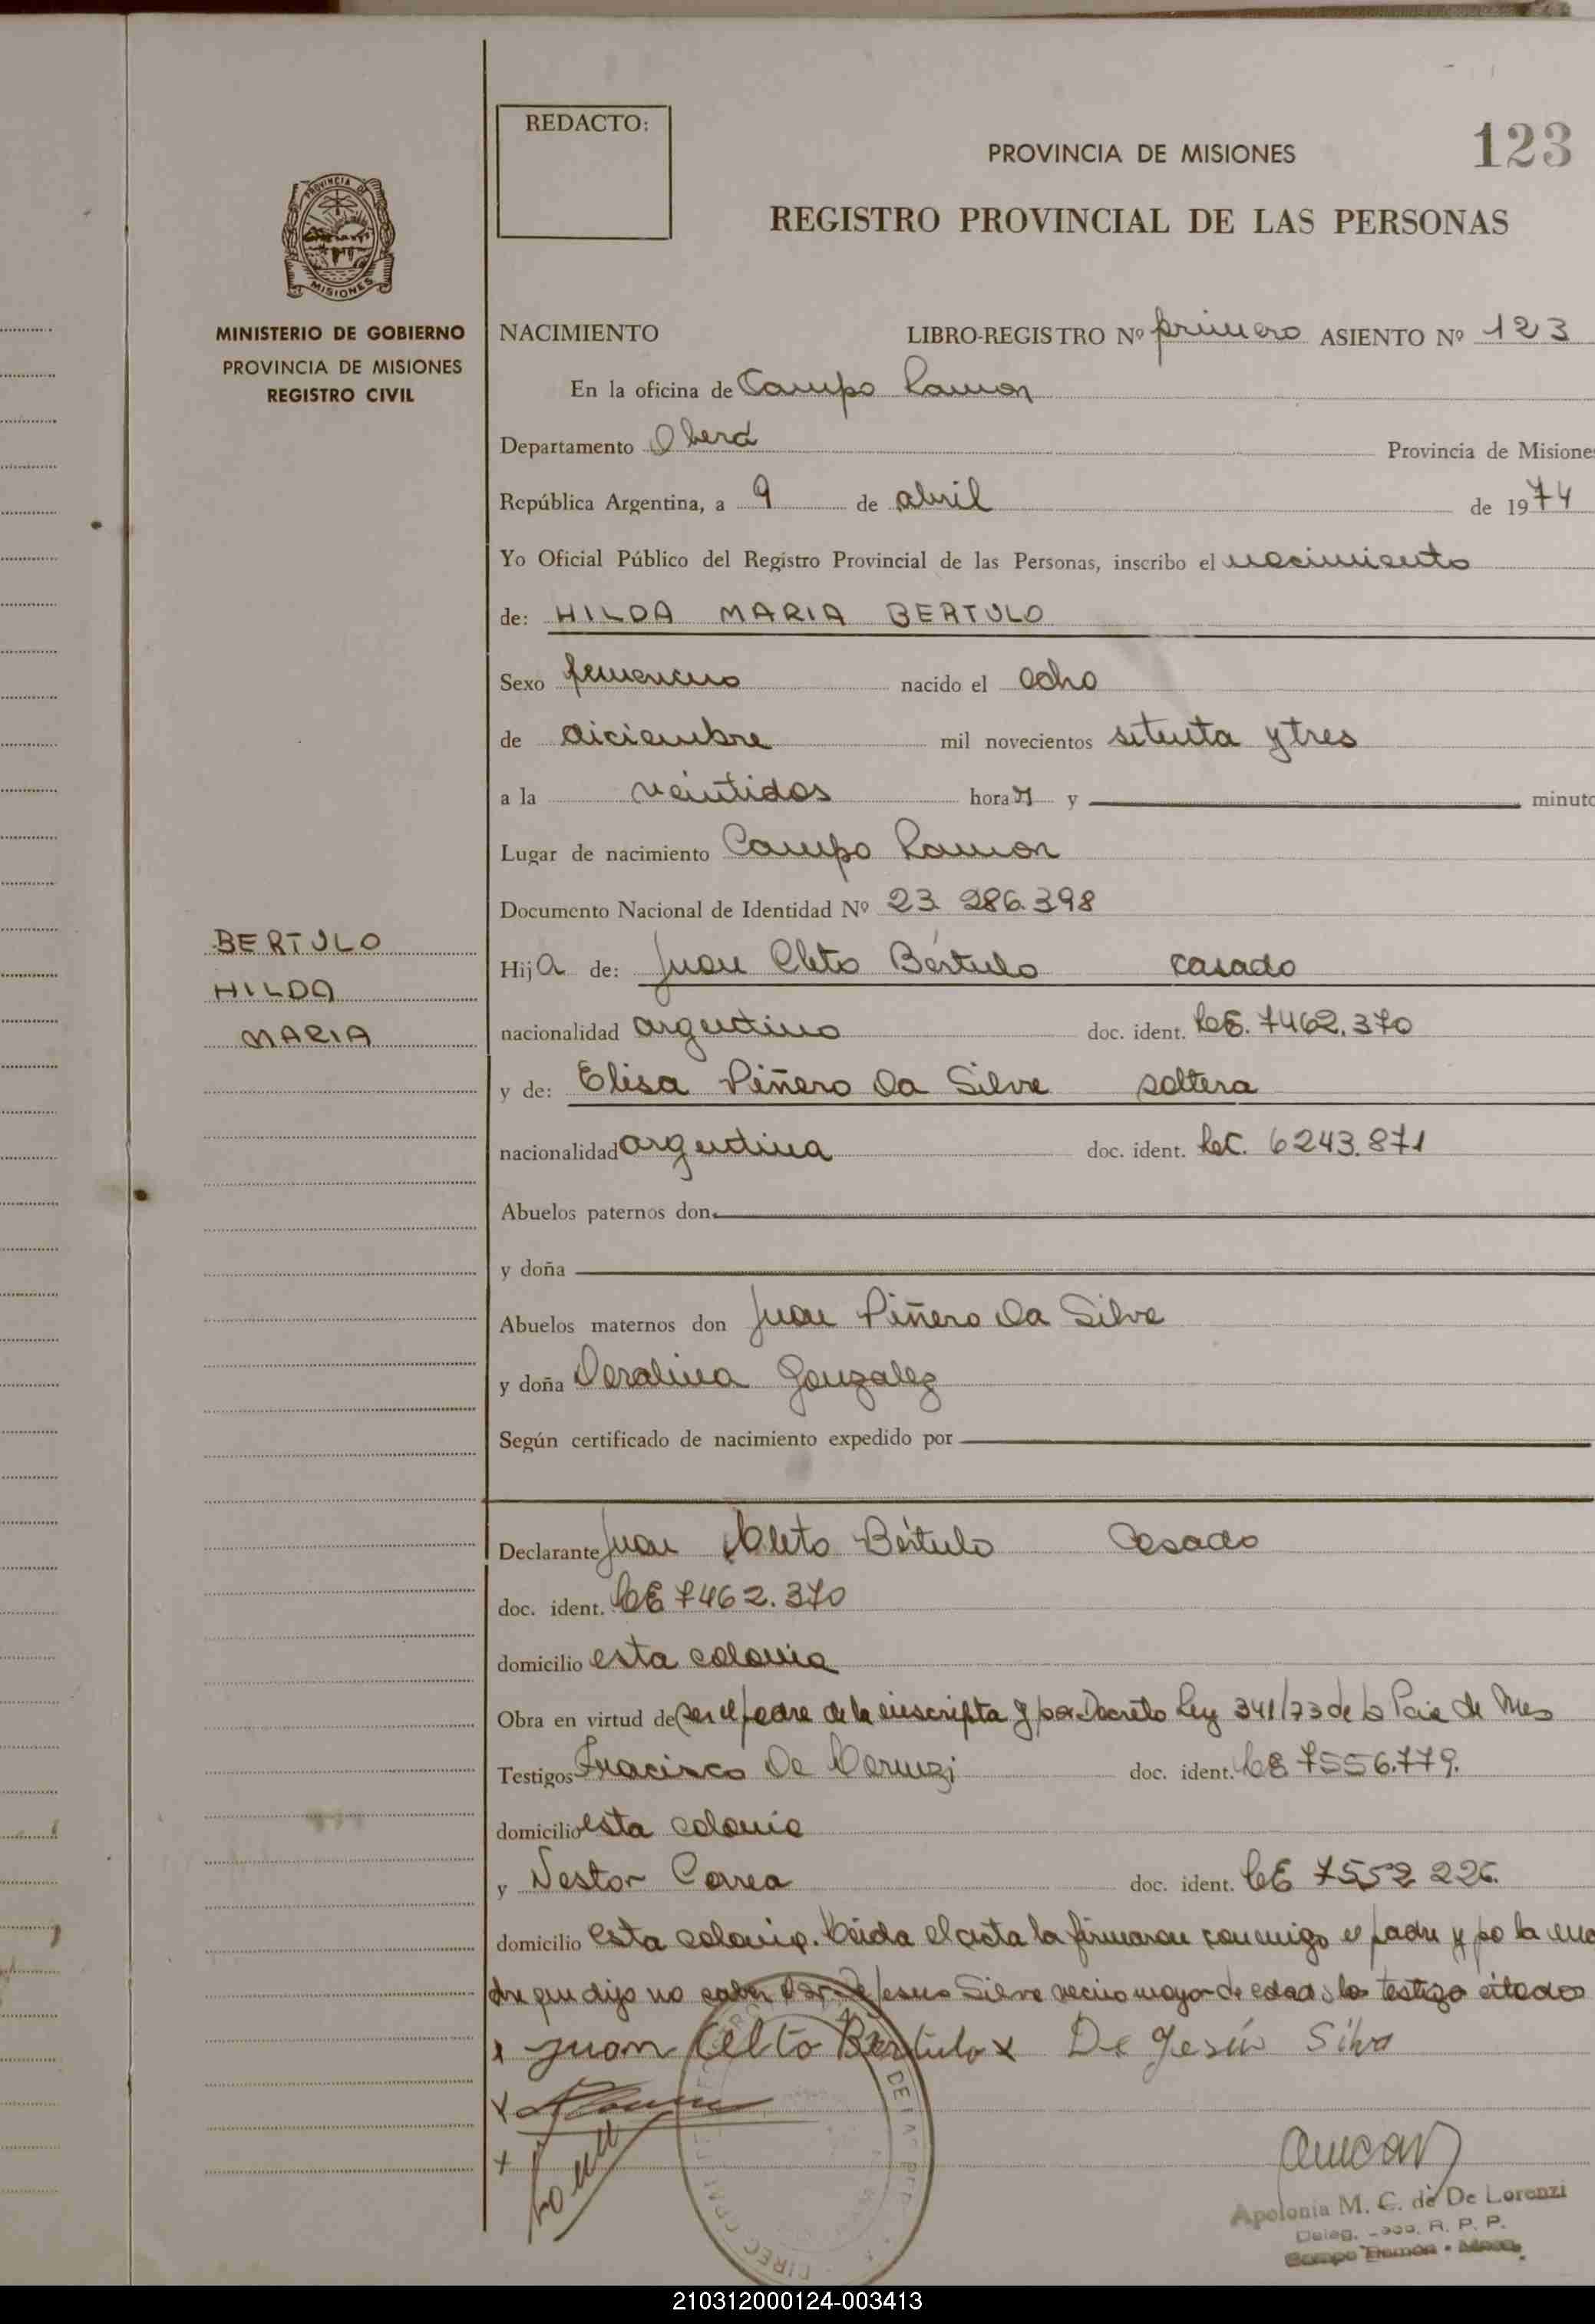 REDACTO:
PROVINCIA DE MISIONES
123
REGISTRO PROVINCIAL DE LAS PERSONAS
PROVINCIA DE
MISIONES
MINISTERIO DE GOBIERNO
PROVINCIA DE MISIONES
REGISTRO CIVIL
NACIMIENTO LIBRO-REGISTRO Nº primero ASIENTO Nº 123
En la oficina de Campo Ramon
Departamento Oberá Provincia de Misione
República Argentina, a 9 de abril de 1974
Yo Oficial Público del Registro Provincial de las Personas, inscribo el nacimiento
de: HILDA MARIA BERTULO
Sexo femenino nacido el ocho
de diciembre mil novecientos setenta y tres
a la veintidos horas y minuto
Lugar de nacimiento Campo Ramon
Documento Nacional de Identidad Nº 23 286.398
BERTULO
HILDA
MARIA
Hija de: Juan Cleto Bértulo casado
nacionalidad argentino doc. ident. LE. 7462.370
y de: Elisa Piñero Da Silva soltera
nacionalidad argentina doc. ident. LC. 6243.871
Abuelos paternos don
y doña
Abuelos maternos don Juan Piñero Da Silva
y doña Gonzalez
Según certificado de nacimiento expedido por
Declarante Juan Cleto Bértulo casado
doc. ident. LE 7462.370
domicilio esta colonia
Obra en virtud de ser el padre de la inscripta y por Decreto Ley 341/73 de la Pcia de Mnes
Testigos Francisco De Lorenzi doc. ident. LE 7556.779.
domicilio esta colonia
y Nestor Correa doc. ident. LE 7552 226.
domicilio esta colonia. Leida el acta la firmaron conmigo el padre y po la ma
dre que dijo no saber De Jesus Silva vecino mayor de edad, los testigo citados
x Juan Celto Bertulo x De Jesús Silva
x
x
Apolonia M. C. de De Lorenzi
Deleg. R. P. P.
Campo Ramon - Mnes.
210312000124-003413